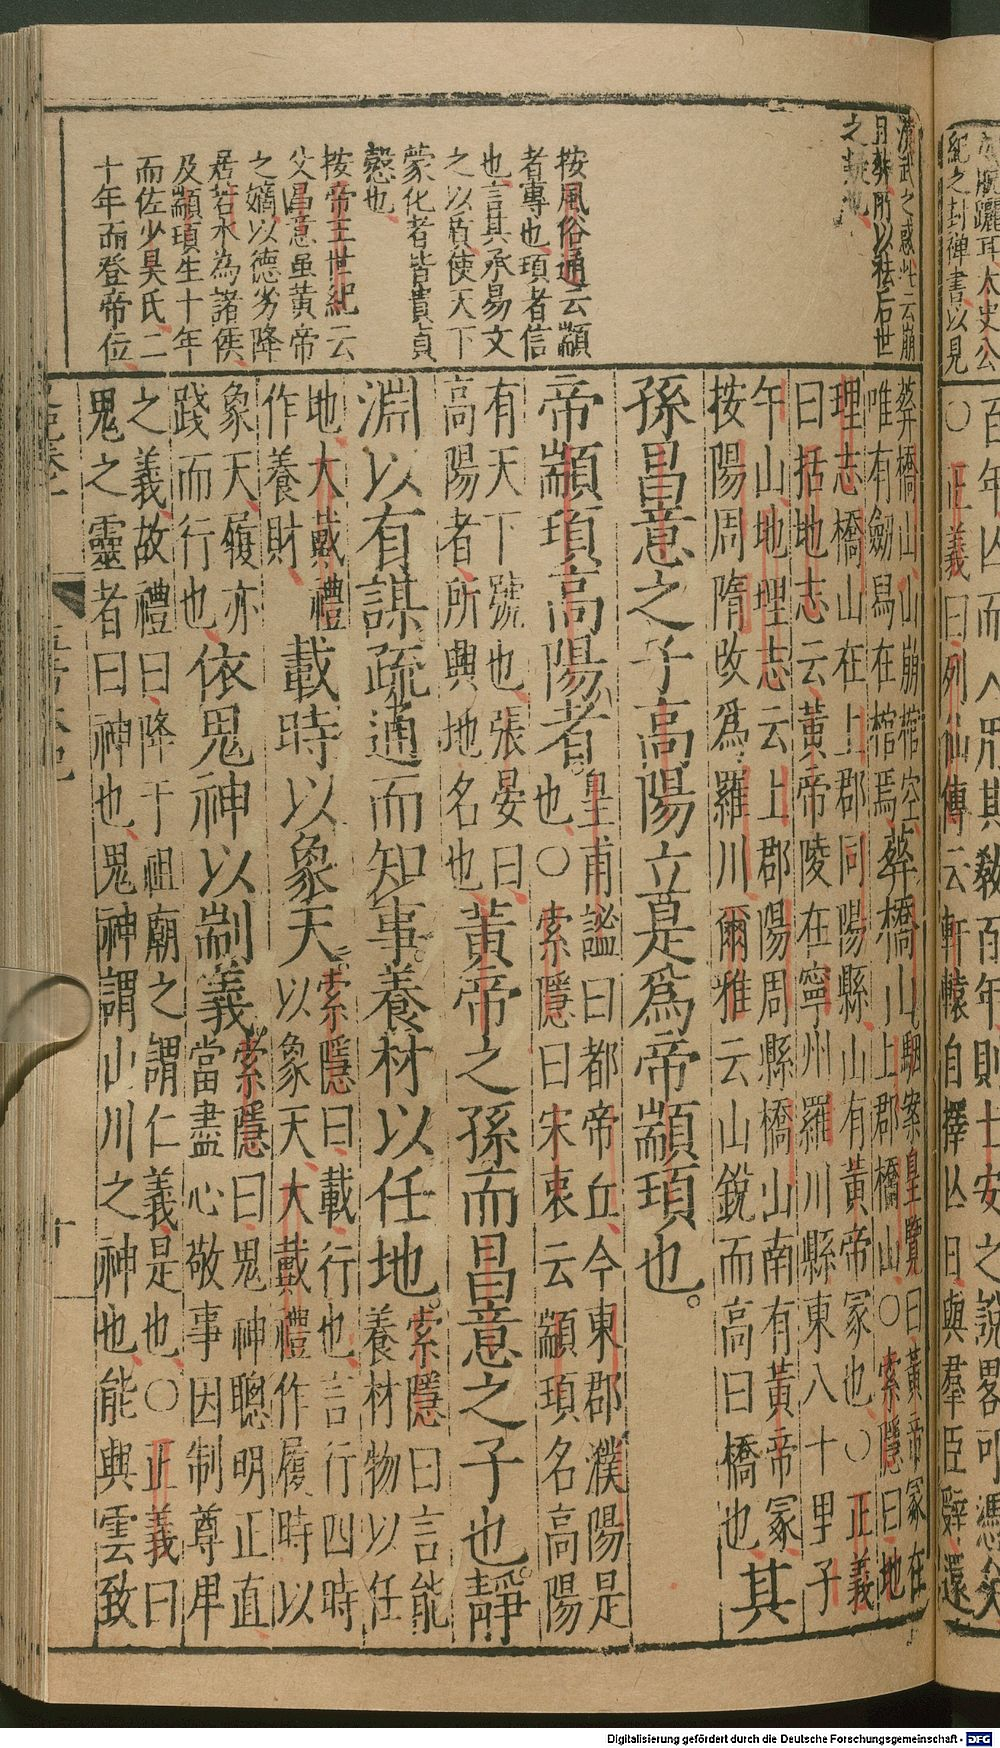 紀之封禪書以見
百年囚而人用其敎百年則士安之說畧可憑矣
○正義曰列仙傳云軒轅自擇亾日與羣臣辭還
漢武之惑此云崩
且葬所以祛后世
之疑也
按風俗通云顓
者專也頊者信
也言其承易文
之以質使天下
蒙化者皆貴貞
慤也
按帝王世紀云
父昌意虽黃帝
之嫡以德劣降
居若水為諸侯
及顓頊生十年
而佐少昊氏二
十年而登帝位
葬橋山山崩棺空
唯有劒舄在棺焉
葬橋山。
駰案皇覽曰黃帝冢在
上郡橋山○索隱曰地
理志橋山在上郡同陽縣山有黃帝冢也○正義
曰括地志云黃帝陵在寧州羅川縣東八十里子
午山地理志云上郡陽周縣橋山南有黃帝冢
按陽周隋改爲羅川爾雅云山銳而高曰橋也
其
孫昌意之子高陽立是爲帝顓頊也。
帝顓頊高陽者。
皇甫謐曰都帝丘今東郡濮陽是
也○索隱曰宋衷云顓頊名高陽
有天下號也張晏曰
高陽者所興地名也
黃帝之孫而昌意之子也。靜
淵以有謀疏通而知事。養材以任地。
索隱曰言能
養材物以任
地大戴禮
作養財
載時以象天。
索隱曰載行也言行四時
以象天大戴禮作履時以
象天履亦
踐而行也
依鬼神以剬義。
索隱曰鬼神聰明正直
當盡心敬事因制尊卑
之義故禮曰降于祖廟之謂仁義是也○正義曰
鬼之靈者曰神也鬼神謂山川之神也能興雲致
十
Digitalisierung gefördert durch die Deutsche Forschungsgemeinschaft - DFG